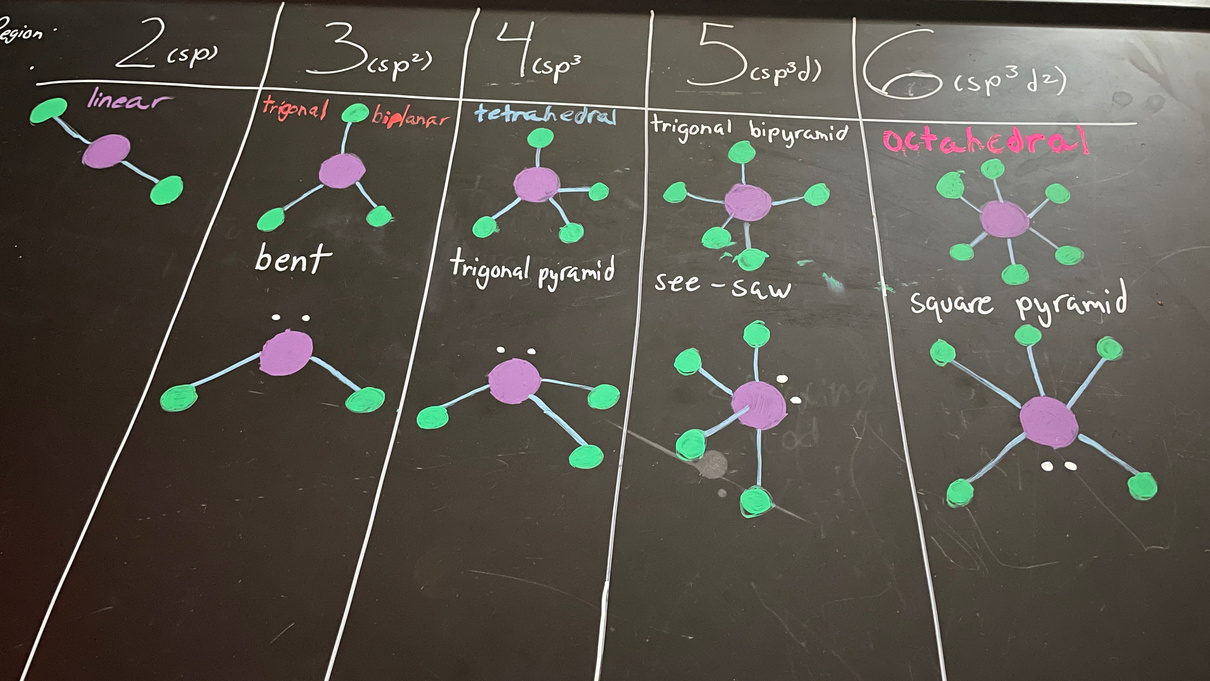 Region.
2 (sp)
3 (sp²)
4 (sp³
5 (sp³d)
6 (sp³d²)
linear
trigonal biplanar
tetrahedral
trigonal bipyramid
octahedral
bent
trigonal pyramid
see-saw
square pyramid